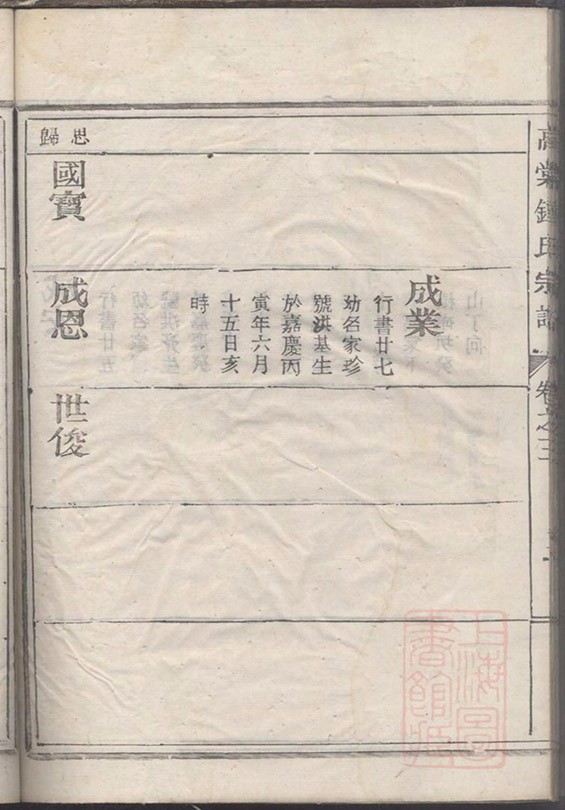 高棠鍾氏宗譜
卷之三
成業
行書廿七
幼名家珍
號洪基生
於嘉慶丙
寅年六月
十五日亥
時
思歸
國寶
成恩
世俊
上海圖
書館藏